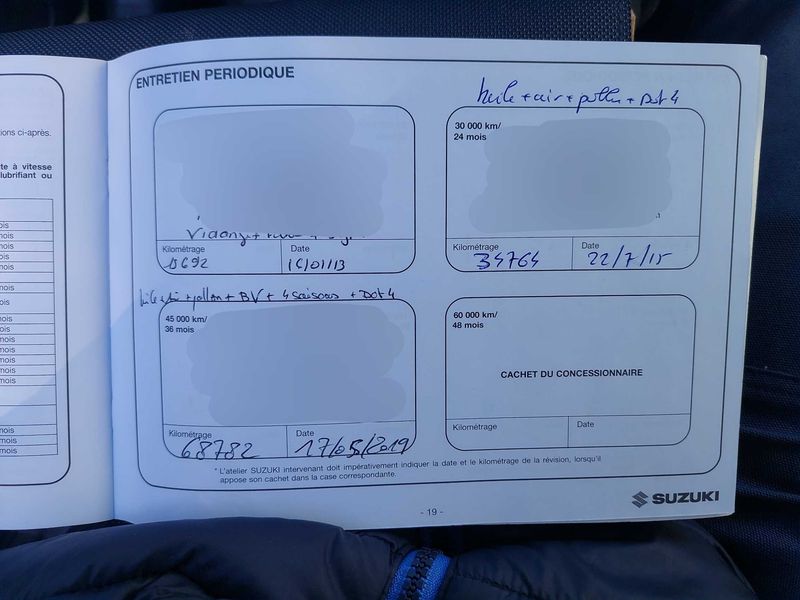 ENTRETIEN PERIODIQUE
ions ci-après.
te à vitesse
lubrifiant ou
ois
mois
mois
mois
mois
mois
mois
ois
mois
mois
mois
mois
mois
mois
mois
mois
mois
Vidange +
Kilométrage
Date
huile + air + pollen + Dot 4
30 000 km/
24 mois
Kilométrage
34764
Date
22/7/15
pollen + BV + 4 saisons + Dot 4
45 000 km/
36 mois
Kilométrage
68782
Date
17/05/2019
60 000 km/
48 mois
CACHET DU CONCESSIONNAIRE
Kilométrage
Date
* L'atelier SUZUKI intervenant doit impérativement indiquer la date et le kilométrage de la révision, lorsqu'il
appose son cachet dans la case correspondante.
- 19 -
SUZUKI